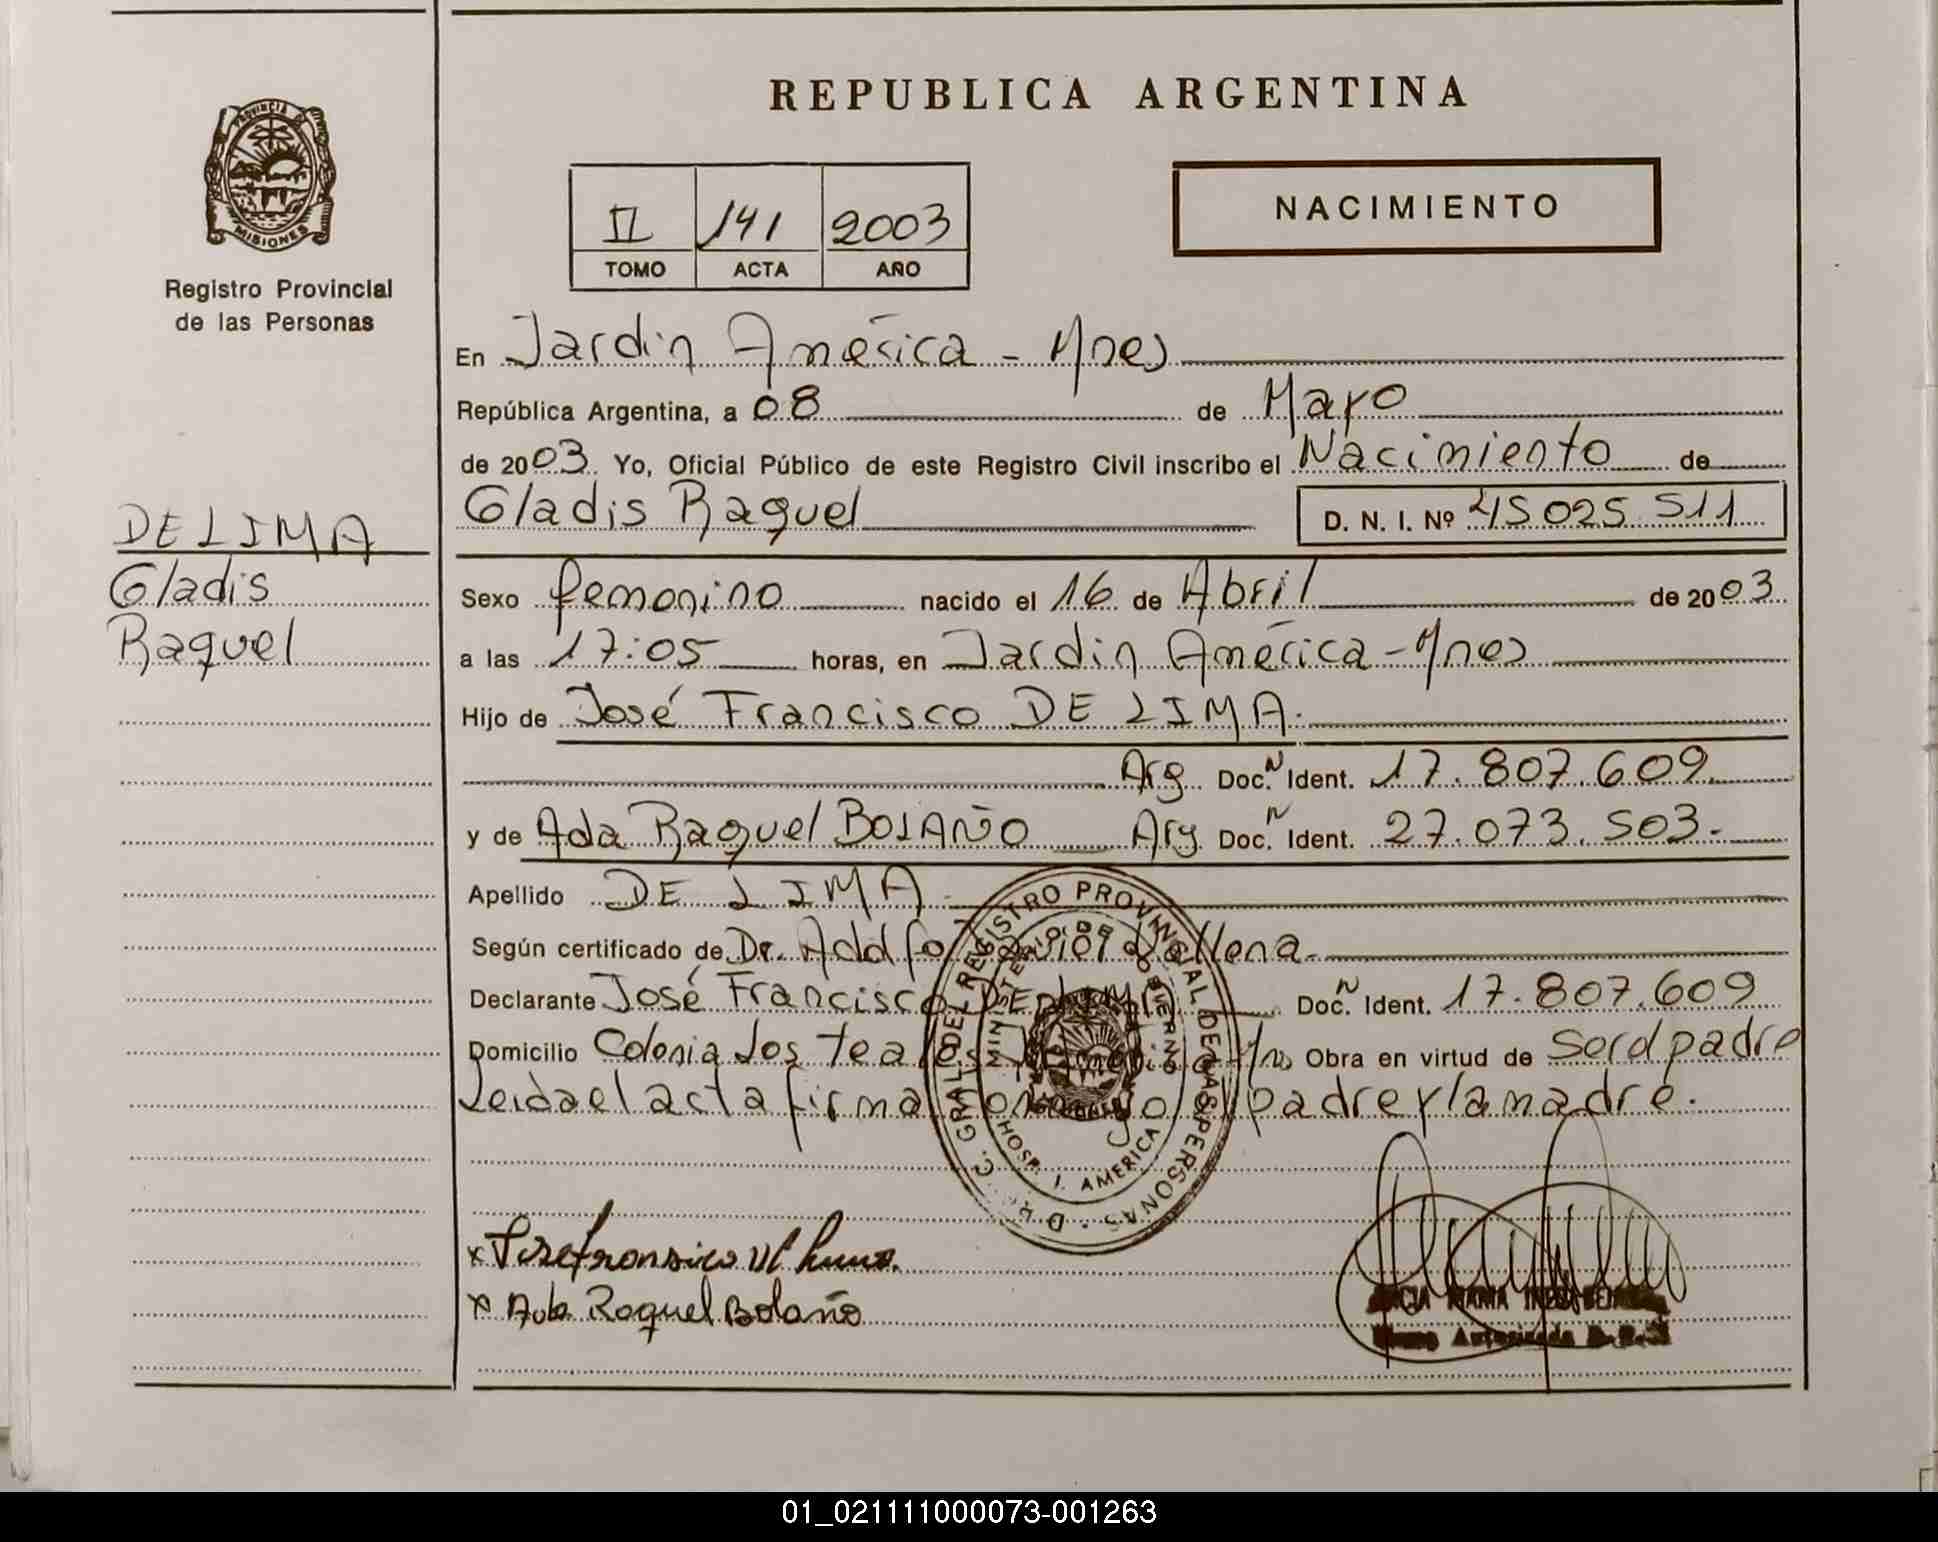 REPUBLICA ARGENTINA
PROVINCIA DE
MISIONES
Registro Provincial
de las Personas
II 141 2003
TOMO ACTA AÑO
NACIMIENTO
En Jardin América - Mnes
República Argentina, a 08 de Mayo
de 2003 Yo, Oficial Público de este Registro Civil inscribo el Nacimiento de
Gladis Raquel D. N. I. Nº 45 025 511
DE LIMA
Gladis
Raquel
Sexo femenino nacido el 16 de Abril de 2003
a las 17:05 horas, en Jardin América - Mnes
Hijo de José Francisco DE LIMA.
Arg Doc. N Ident. 17.807.609
y de Ada Raquel BOLAÑO Arg. Doc. N Ident. 27.073.503.-
Apellido DE LIMA.
Según certificado de Dr. Adolfo
Declarante José Francisco DE LIMA Doc. N Ident. 17.807.609
Domicilio Colonia Los Obra en virtud de Ser el padre
Leida el acta firma el padre y la madre.
REGISTRO PROVINCIAL DE LAS PERSONAS
MINISTERIO DE GOBIERNO
HOSP. J. AMERICA
x
x Ada Raquel Bolaño
MARIA
01_021111000073-001263